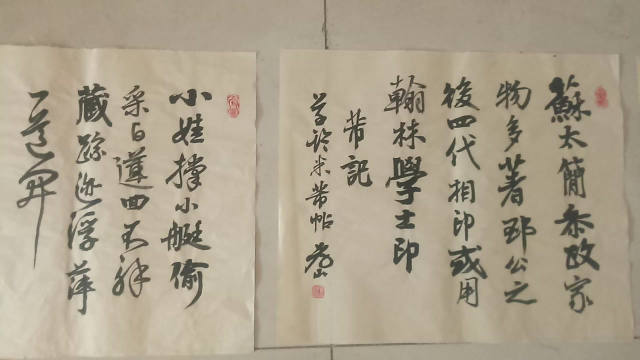 蘇太簡參政家
物多著邳公之
後四代相印或用
翰林學士印
芾記
芾帖
小娃撐小艇偷
采白蓮回不解
藏蹤迹浮萍
一道開